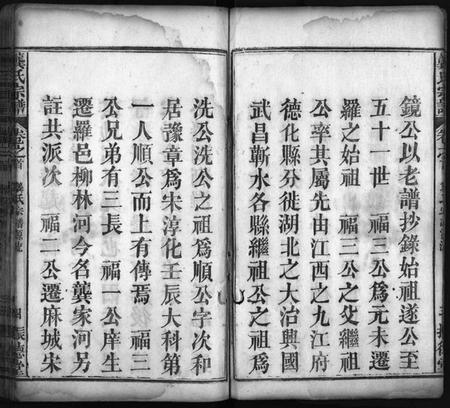 鏡公以老譜抄錄始祖遂公至
五十一世　福三公爲元末遷
羅之始祖　福三公之父繼祖
公率其屬先由江西之九江府
德化縣分徙湖北之大冶興國
武昌蘄水各縣繼祖公之祖爲
洗公洗公之祖爲順公字次和
居豫章爲宋淳化壬辰大科第
一人順公而上有傳焉　福三
公兄弟有三長　福一公庠生
遷羅邑柳林河今名龔家河另
註共派次　福二公遷麻城宋
龔氏宗譜
卷之首
振德堂